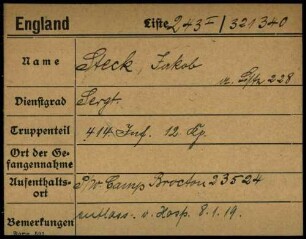 England Liste 243 I / 321340
Name Steck, Jakob
Dienstgrad Sergt.
Truppenteil 414. Inf. 12 Kp.
Ort der Ge-
fangennahme
Aufenthalts-
ort P/W. Camp Brocton 23524
Bemerkungen entlass. v. Hosp. 8.1.19.